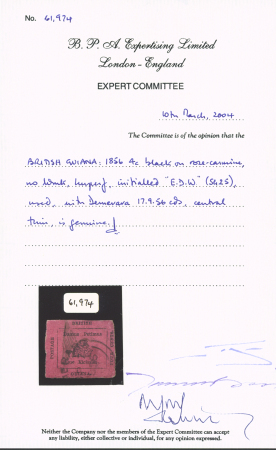 No. 61,974
B. P. A. Expertising Limited
London - England
EXPERT COMMITTEE
10th March, 2004
The Committee is of the opinion that the
BRITISH GUIANA: 1856 4c black on rose-carmine,
no wmk, imperf, initialled "E.D.W" (SG25),
used, with Demerara 17.9.56 cds, central
thin, is genuine.
61,974
Neither the Company nor the members of the Expert Committee can accept
any liability, either collective or individual, for any opinion expressed.